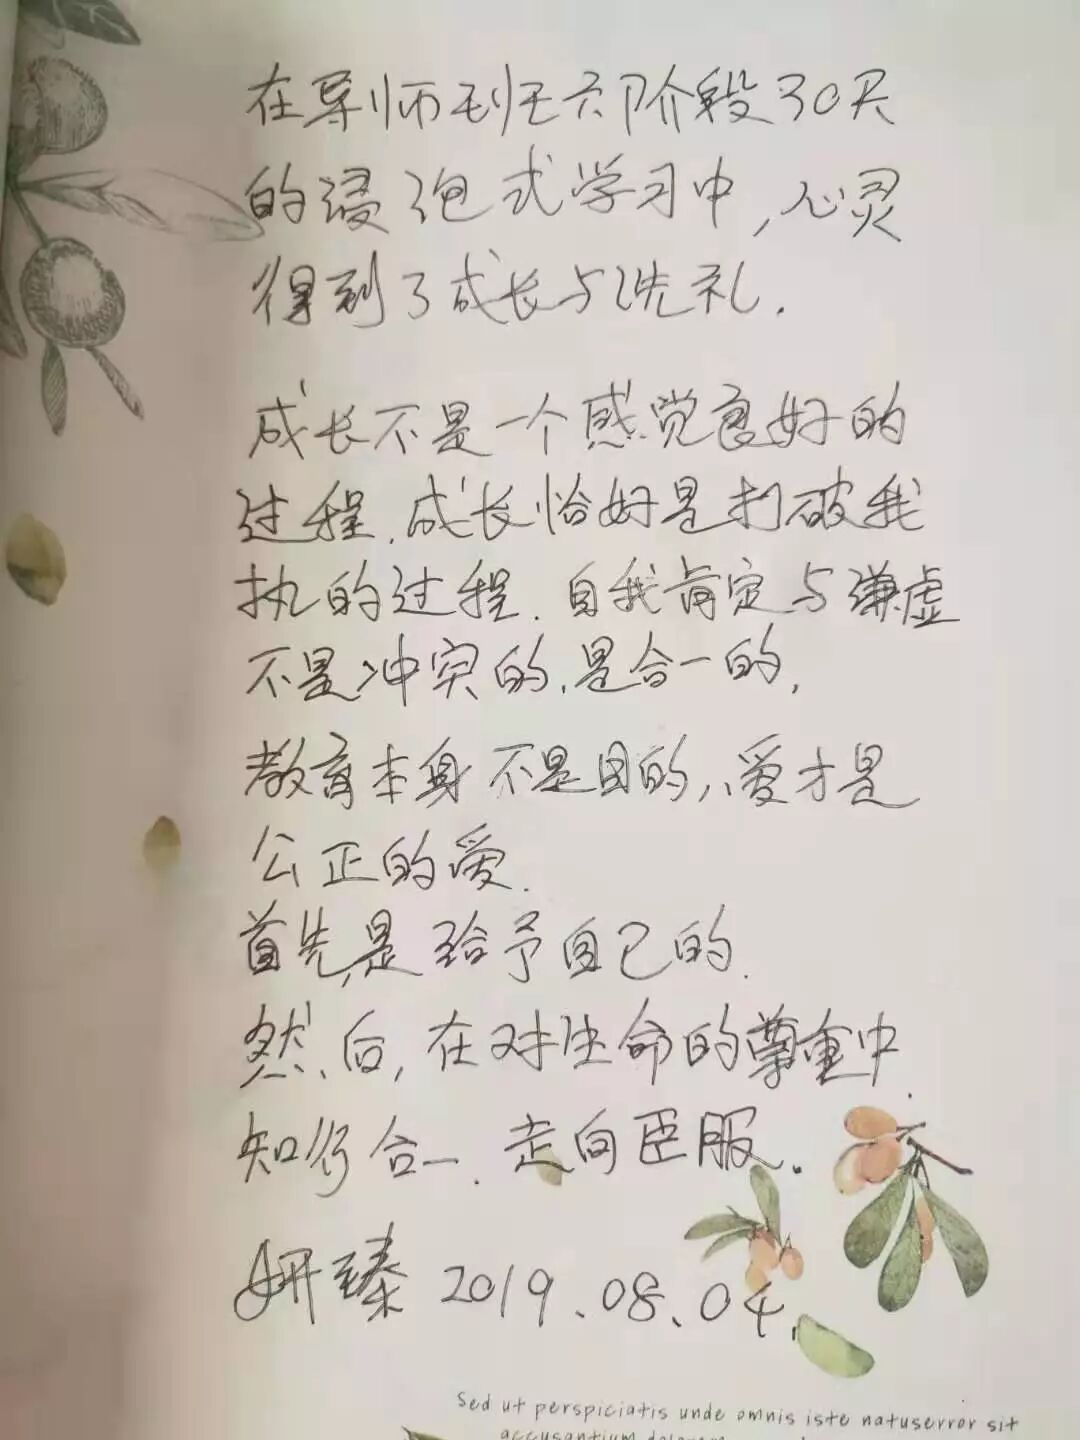 在导师班六阶段30天
的浸泡式学习中,心灵
得到了成长与洗礼.
成长不是一个感觉良好的
过程.成长恰好是打破我
执的过程.自我肯定与谦虚
不是冲突的.是合一的,
教育本身不是目的,爱才是
公正的爱.
首先,是给予自己的.
然后,在对生命的尊重中.
知行合一.走向臣服.
妍臻 2019.08.04.
Sed ut perspiciatis unde omnis iste natuserror sit
accusantium